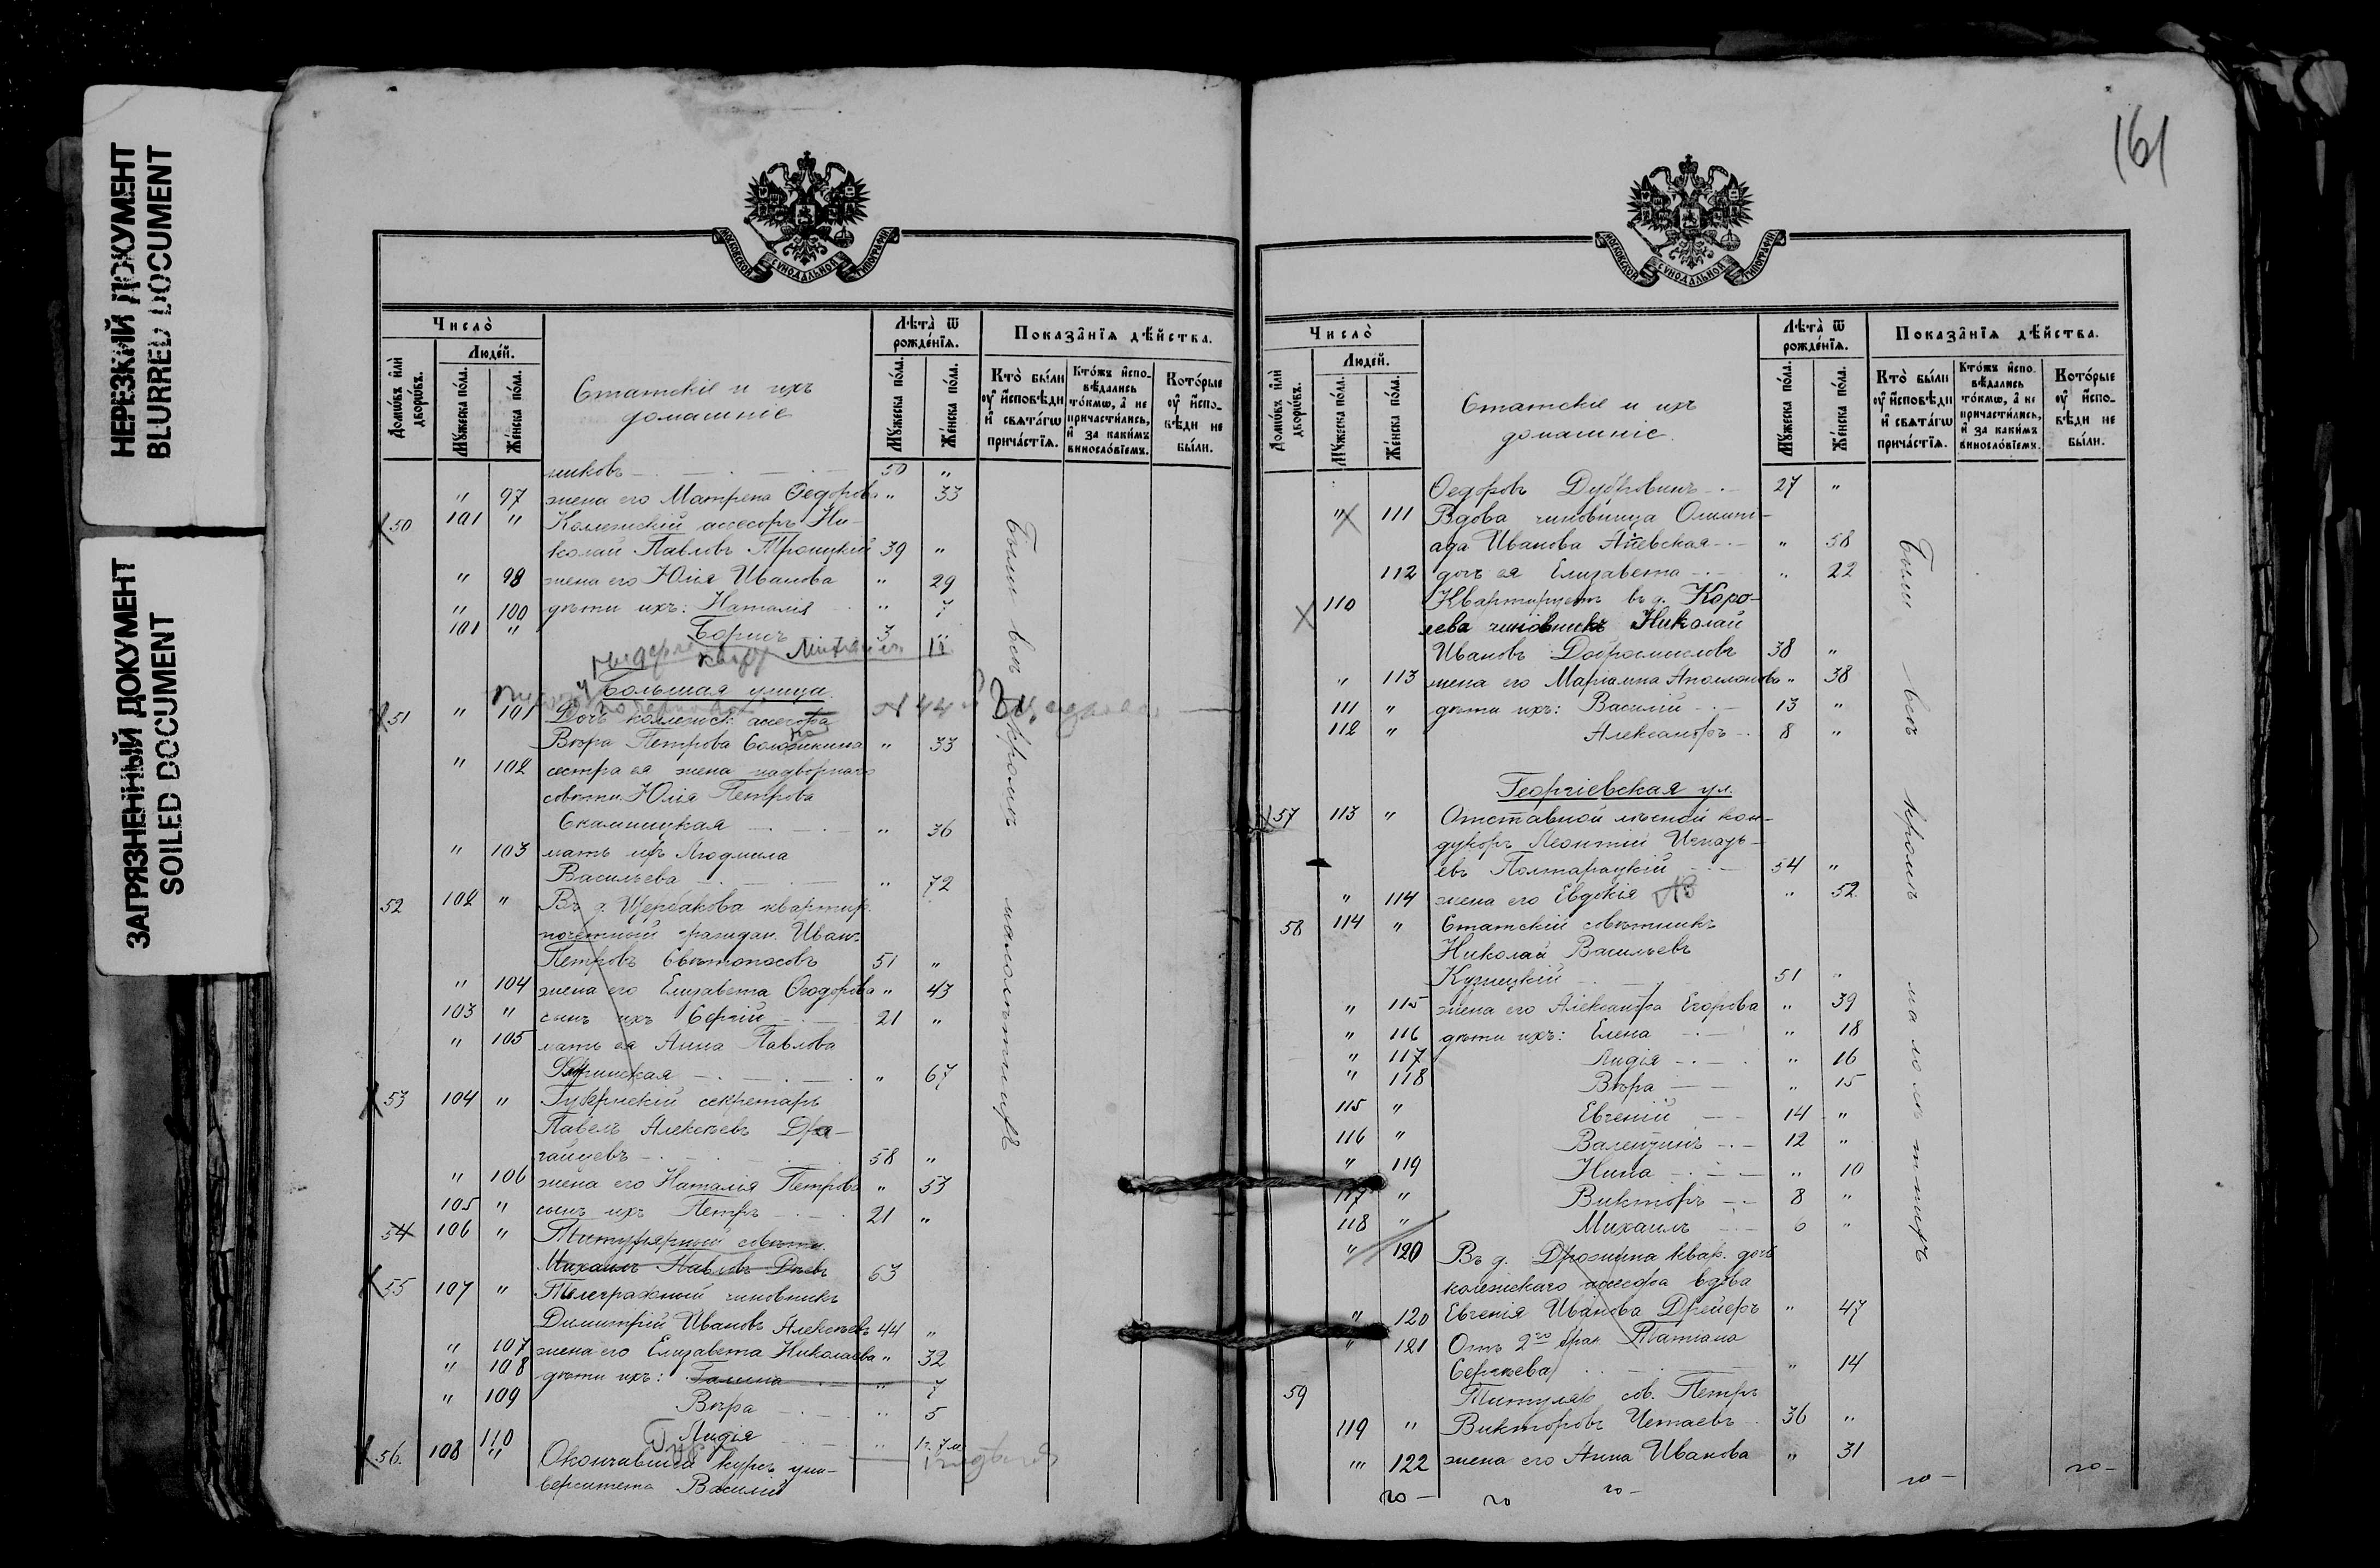 НЕРЕЗКИЙ ДОКУМЕНТ
BLURRED DOCUMENT
ЗАГРЯЗНЕННЫЙ ДОКУМЕНТ
SOILED DOCUMENT
МОСКОВСКОЙ СУНОДАЛЬНОЙ ТИПОГРАФІИ
Число̀
Домѡ́въ и҆лѝ дворѡ́въ.
Люде́й.
Мꙋ́жеска по́ла.
Же́нска по́ла.
Статскіе и ихъ
домашніе
Лѣта̀ ѿ рожде́нїѧ.
Мꙋ́жеска по́ла.
Же́нска по́ла.
Показа̑нїѧ дѣ́йства.
Кто̀ бы́ли ᲂу҆ и҆́сповѣди и҆ свѧта́гѡ прича́стїѧ.
Кто́жъ и҆спо-вѣ́дались то́кмѡ, а҆ не причасти́лись, и҆ за каки́мъ виносло́вїемъ.
Кото́рые ᲂу҆ и҆́спо-вѣди не бы́ли.
никовъ 50 "
" 97 жена его Матрена Ѳедорова " 33
50 101 " Коллежскій ассесоръ Ни-
колай Павловъ Троицкій 39 "
" 98 жена его Юлія Иванова " 29
" 100 дѣти ихъ: Наталія " 7
101 " Борисъ 3
Большая улица.
51 " 101 Дочь коллежск. ассесора
Вѣра Петрова " 33
" 102 сестра ея жена надворнаго
совѣтн. Юлія Петрова
Скамницкая " 36
" 103 мать ихъ Людмила
Васильева " 72
52 102 " Въ д. Щербакова квартир.
почетный граждан. Иванъ
Петровъ Свѣтоносовъ 51 "
" 104 жена его Елизавета Ѳеодорова " 43
103 " сынъ ихъ Сергій 21 "
" 105 мать ея Анна Павлова
" 67
53 104 " Губернскій секретарь
Павелъ Алексѣевъ Дра-
гайцевъ 58 "
" 106 жена его Наталія Петрова " 53
105 " сынъ ихъ Петръ 21 "
54 106 " Титулярный совѣтн.
Михаилъ Павловъ 63
55 107 " Телеграфный чиновникъ
Димитрій Ивановъ Алексѣевъ 44 "
" 107 жена его Елизавета Николаева " 32
" 108 дѣти ихъ: Галина " 7
" 109 Вѣра " 5
110 Лидія " 1 г. 7 м.
56. 108 " Окончавшій курсъ уни-
верситета Василій
Были всѣ кромѣ малолѣтнихъ
161
МОСКОВСКОЙ СУНОДАЛЬНОЙ ТИПОГРАФІИ
Число̀
Домѡ́въ и҆лѝ дворѡ́въ.
Люде́й.
Мꙋ́жеска по́ла.
Же́нска по́ла.
Статскіе и ихъ
домашніе.
Лѣта̀ ѿ рожде́нїѧ.
Мꙋ́жеска по́ла.
Же́нска по́ла.
Показа̑нїѧ дѣ́йства.
Кто̀ бы́ли ᲂу҆ и҆́сповѣди и҆ свѧта́гѡ прича́стїѧ.
Кто́жъ и҆спо-вѣ́дались то́кмѡ, а҆ не причасти́лись, и҆ за каки́мъ виносло́вїемъ.
Кото́рые ᲂу҆ и҆́спо-вѣди не бы́ли.
Ѳедоровъ Дубровинъ 27 "
" 111 Вдова чиновница Олимпі-
ада Иванова " 58
112 дочь ея Елизавета " 22
110 Квартируетъ въ д. Коро-
лева чиновникъ Николай
Ивановъ Добросмысловъ 38 "
" 113 жена его Маріамна Аполлонова " 38
111 " дѣти ихъ: Василій 13 "
112 " Александръ 8 "
Георгіевская ул.
57 113 " Отставной лѣсной кон-
дукторъ Леонтій Игнать-
евъ Полтарацкій 54 "
" 114 жена его Евдокія " 52
58 114 " Статскій совѣтникъ
Николай Васильевъ
Кузнецкій 51 "
" 115 жена его Александра Егорова " 39
" 116 дѣти ихъ: Елена " 18
" 117 Лидія " 16
" 118 Вѣра " 15
115 " Евгеній 14 "
116 " Валентинъ 12 "
" 119 Нина " 10
117 " Викторъ 8 "
118 " Михаилъ 6 "
" 120 Въ д. Дрожжина квар. дочь
колежскаго ассесора вдова
" 120 Евгенія Иванова Дрейеръ " 47
" 121 Отъ 2го брак. Татіана
Сергѣева " 14
59 Титуляр. сов. Петръ
119 " Викторовъ Четаевъ 36 "
" 122 жена его Анна Иванова " 31
Были всѣ кромѣ малолѣтнихъ